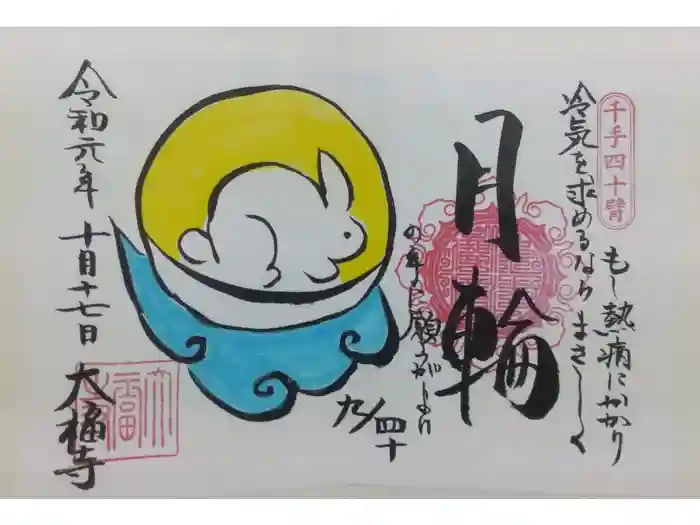 千手四十臂
もし熱病にかかり
冷気を求めるならまさしく
月輪
の手に願うがよい
九/四十
令和元年 十月十七日 大福寺